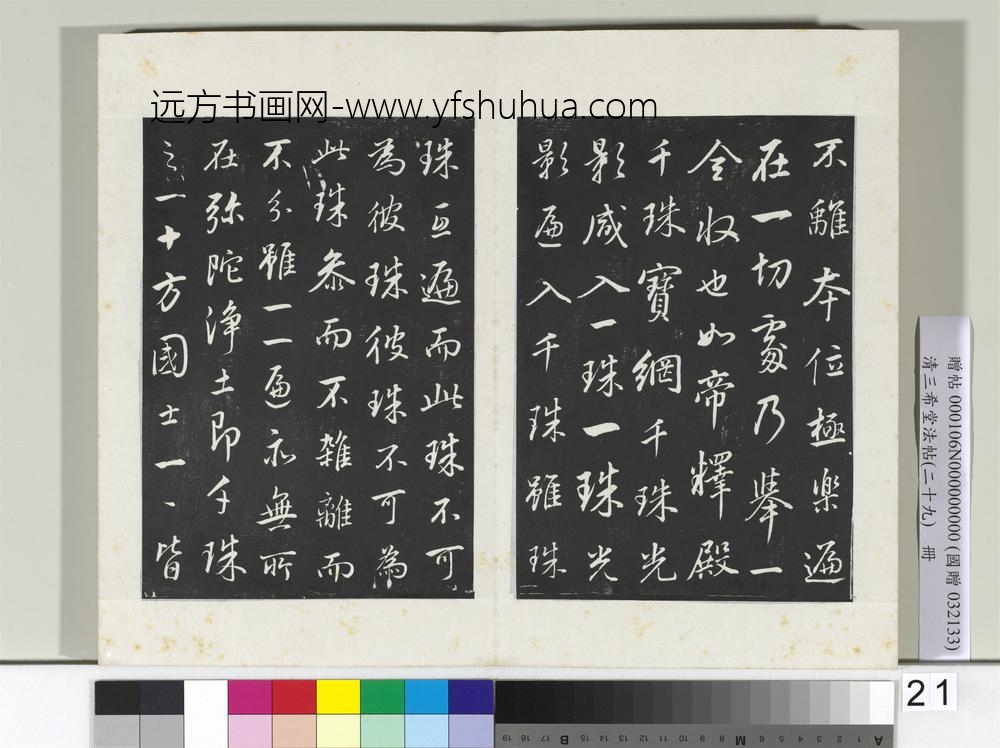 远方书画网-www.yfshuhua.com
不離本位極樂遍
在一切處乃舉一
全收也如帝釋殿
千珠寶網千珠光
影咸入一珠一珠光
影遍入千珠雖珠
珠互遍而此珠不可
為彼珠彼珠不可為
此珠參而不雜離而
不分雖一一遍亦無所
在弥陀淨土即千珠
之一十方國土一一皆
贈帖 000106N000000000 (國贈 032133)
清三希堂法帖(二十九) 冊
21